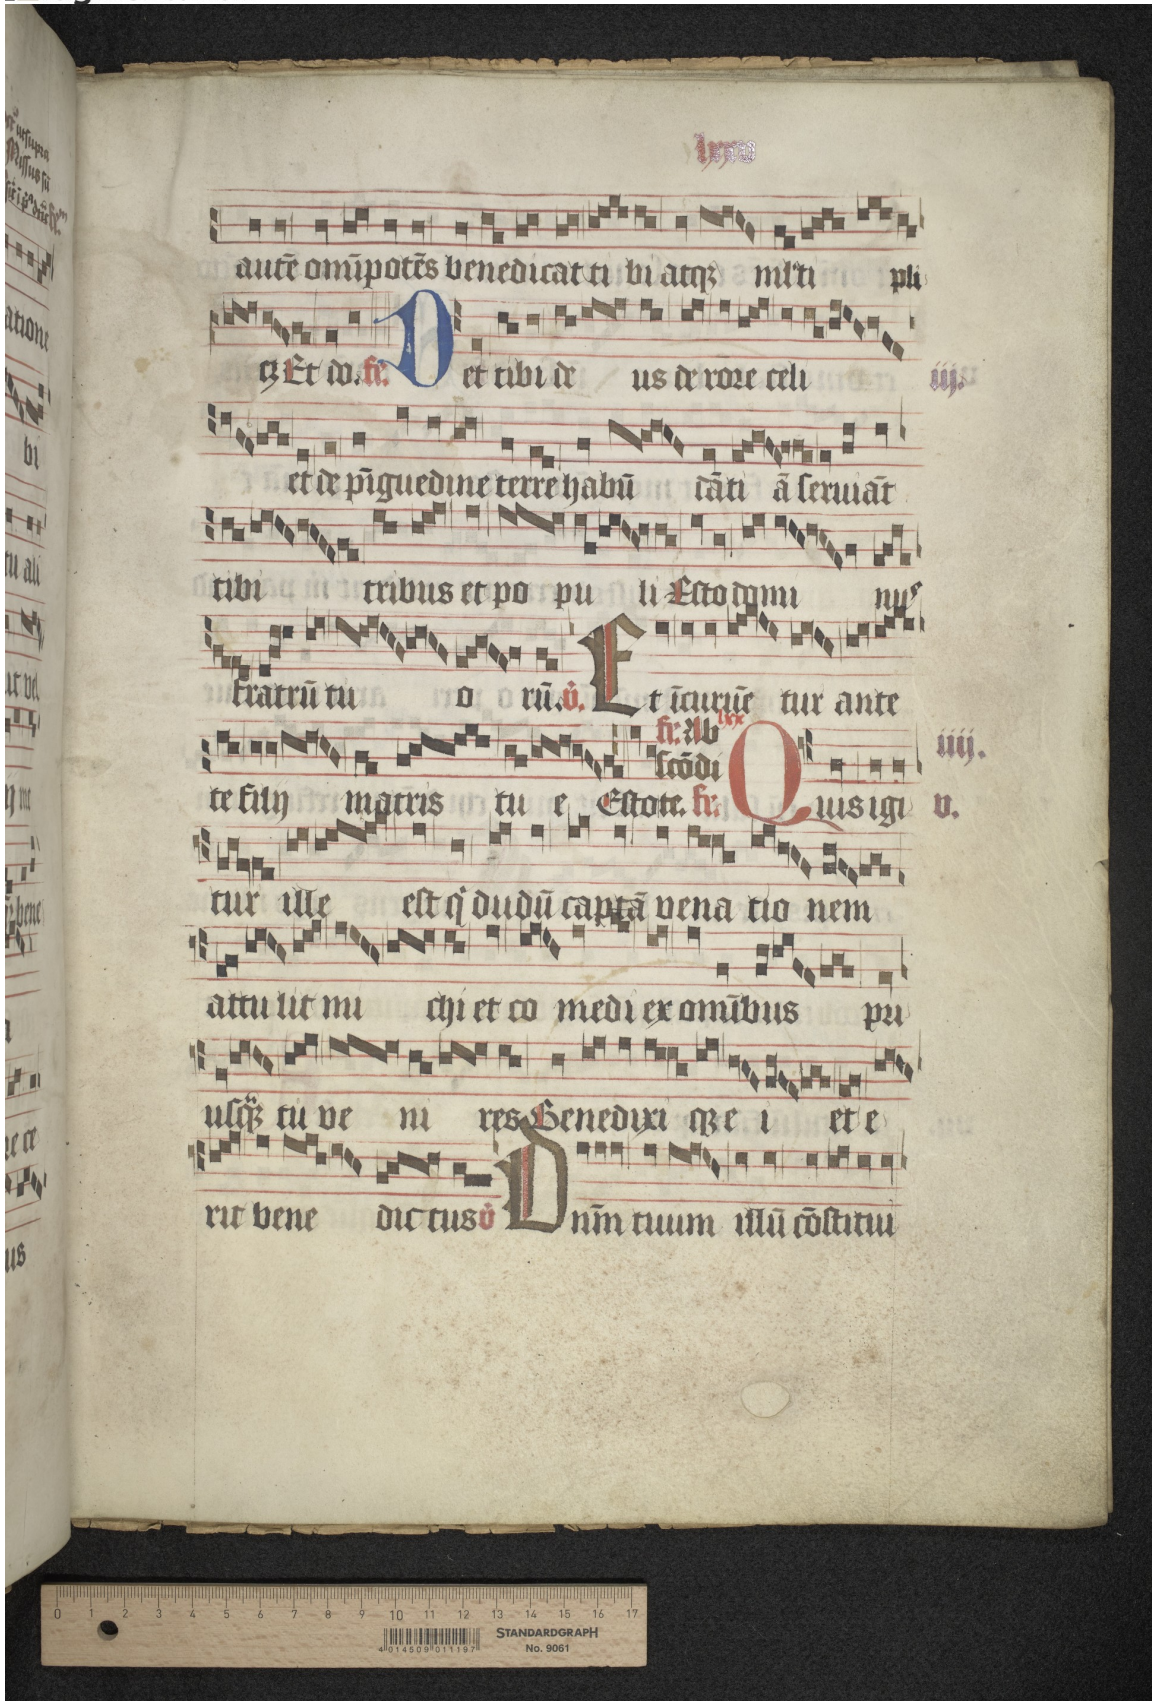 lxxv
autē om̄ipotēs benedicat ti bi atqꝫ ml'ti pli
cꝫ Et do. ℟. Det tibi de us de rore celi iij.
et de pīguedine terre habū dāti ā seruiāt
tibi tribus et po pu li Esto domi nus
fratrū tu o rū. ℣. Et īcuruē tur ante
℟. Ab lxx
scōdi iiij.
te filij matris tu e Estote. ℟. Quis igi v.
tur ille est q̇ dudū captā vena tio nem
attu lit mi chi et co medi ex om̄ibus pri
usq̄ꝫ tu ve ni res Benedixi qꝫ e i et e
rit bene dic tus ℣ Dn̄m tuum illū cōstitui
bi
tu ali
us
0 1 2 3 4 5 6 7 8 9 10 11 12 13 14 15 16 17
4 014509 011197
STANDARDGRAPH
No. 9061